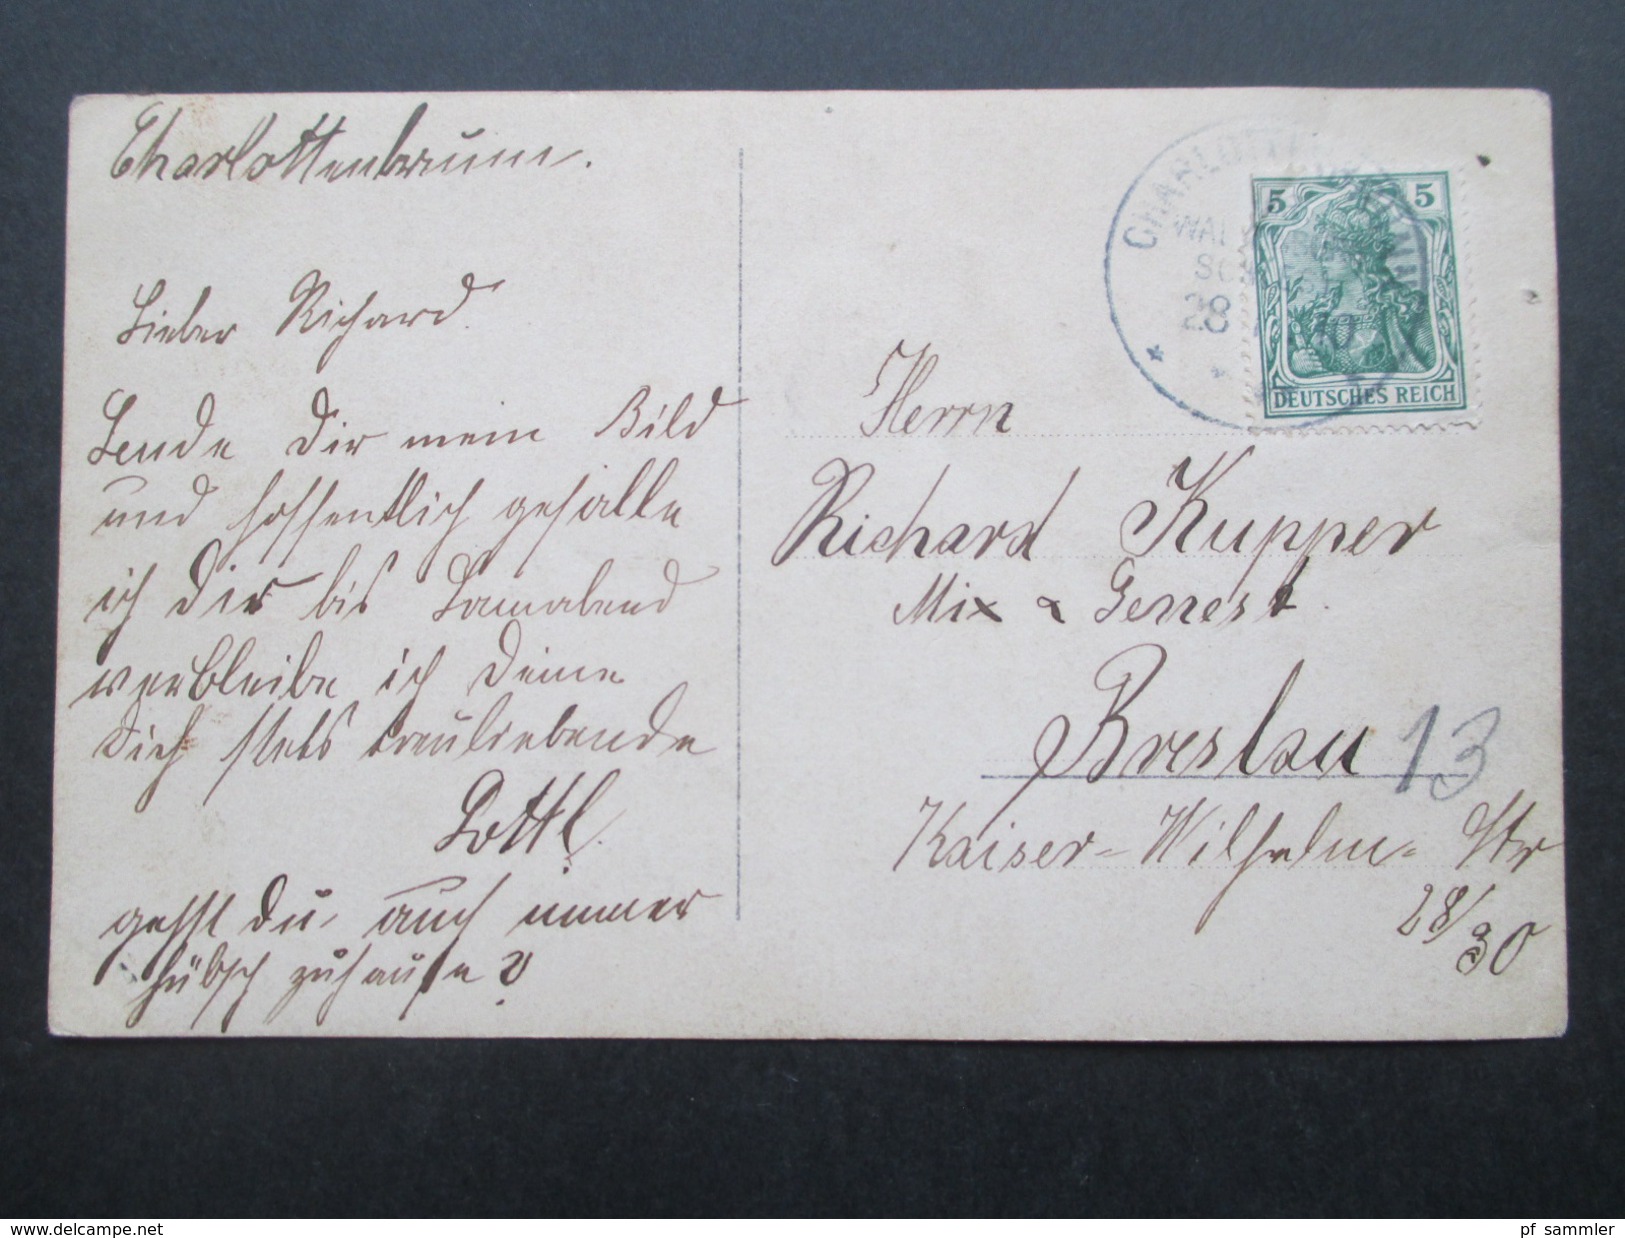 Charlottenbrunn.
Lieber Richard.
Sende Dir mein Bild
und hoffentlich gefalle
ich Dir bis Sonnabend
verbleibe ich Deine
Dich stets treuliebende
Lottl.
gehst Du auch immer
hübsch zuhause?
CHARLOTTENBRUNN
28
5 5
DEUTSCHES REICH
Herrn
Richard Kupper
Mix & Genest.
Breslau 13
Kaiser-Wilhelm-Str
28/30
www.delcampe.net
pf_sammler